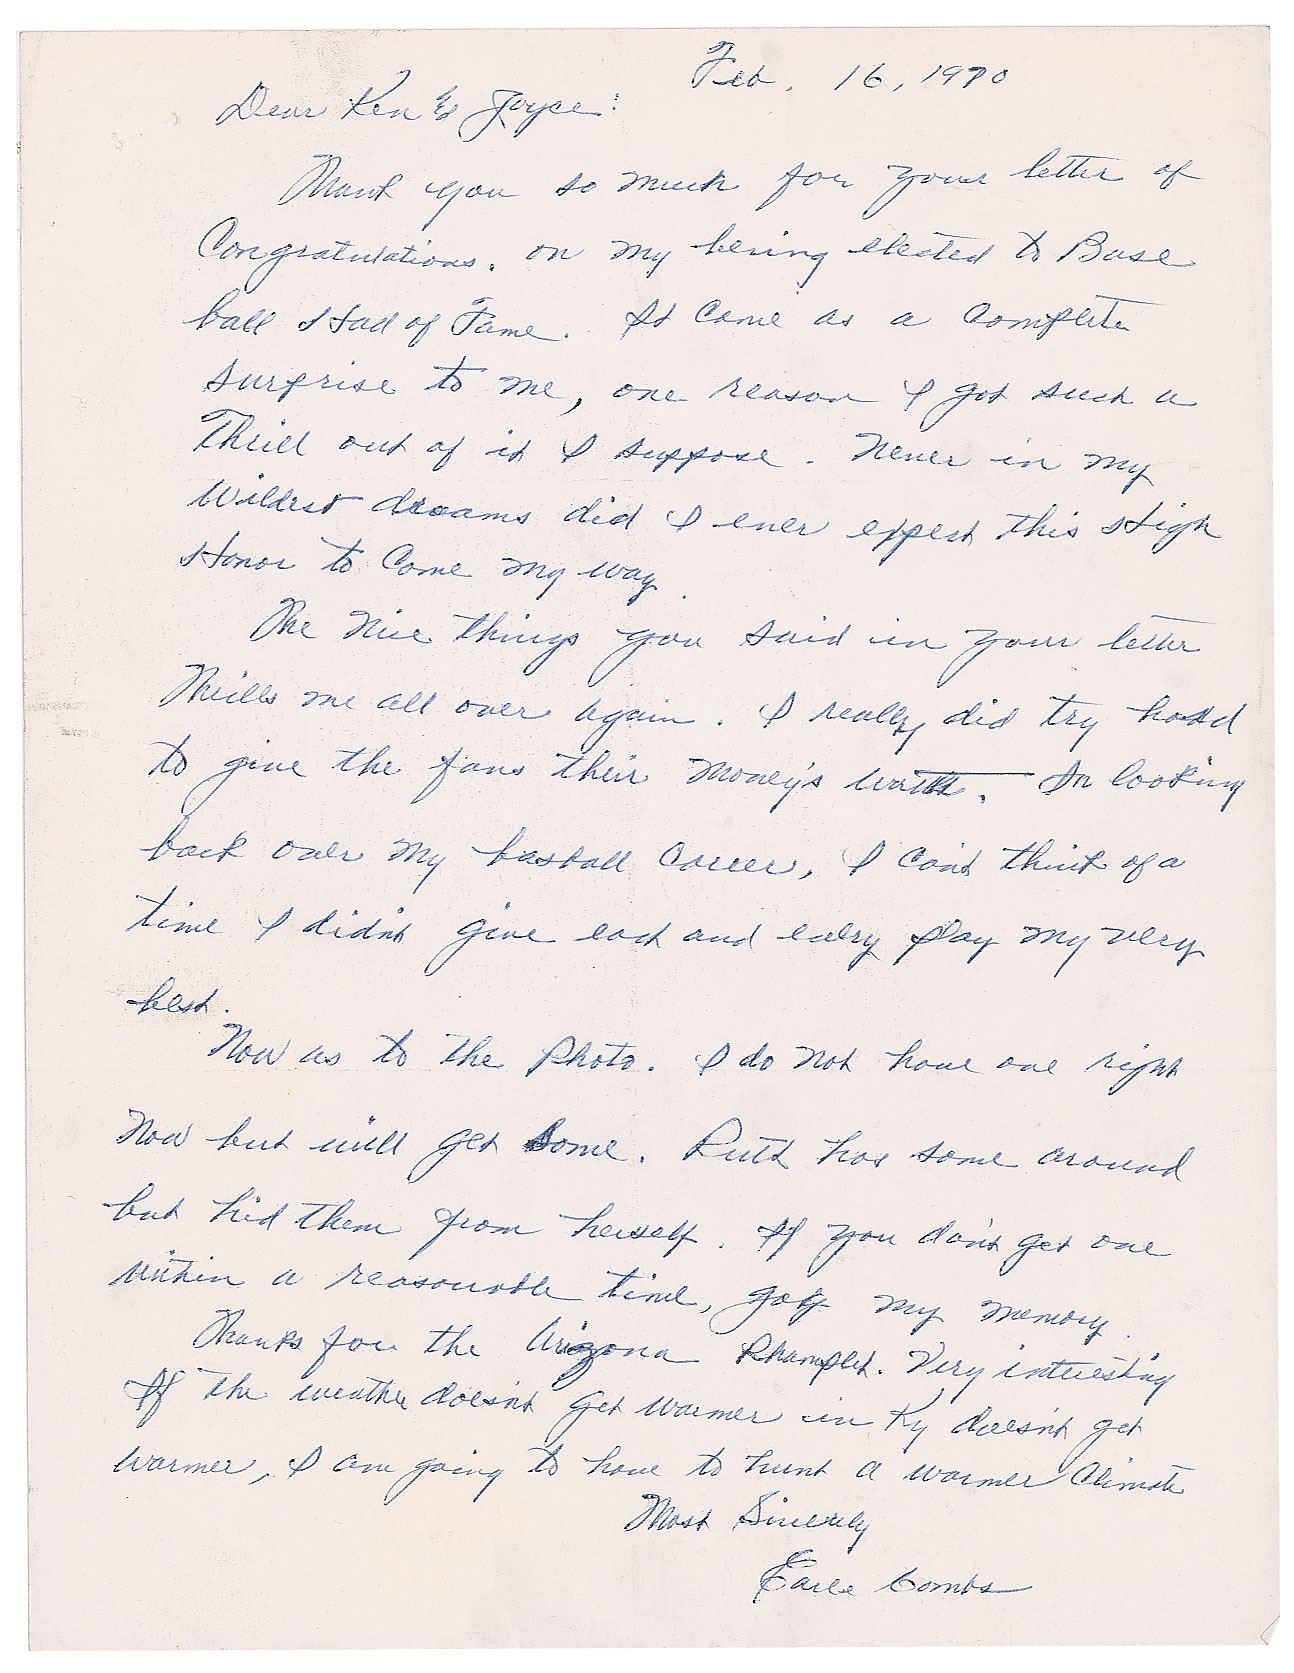 Feb. 16, 1970
Dear Ken & Joyce:
Thank you so much for your letter of
Congratulations. on my being elected to Base
ball Hall of Fame. It came as a complete
surprise to me, one reason I got such a
Thrill out of it I suppose. Never in my
Wildest dreams did I ever expect this High
Honor to Come my way.
The Nice things you said in your letter
Thrills me all over again. I really did try hard
to give the fans their Money's worth. In looking
back over my baseball Career, I can't think of a
time I didn't give each and every play my very
best.
Now as to the Photo. I do not have one right
Now but will get some. Ruth has some around
but hid them from herself. If you don't get one
within a reasonable time, my memory.
Thanks for the Arizona Phamplet. Very interesting
If the weather doesn't get warmer in Ky doesn't get
warmer, I am going to have to hunt a warmer Climate
Most Sincerely
Earle Combs